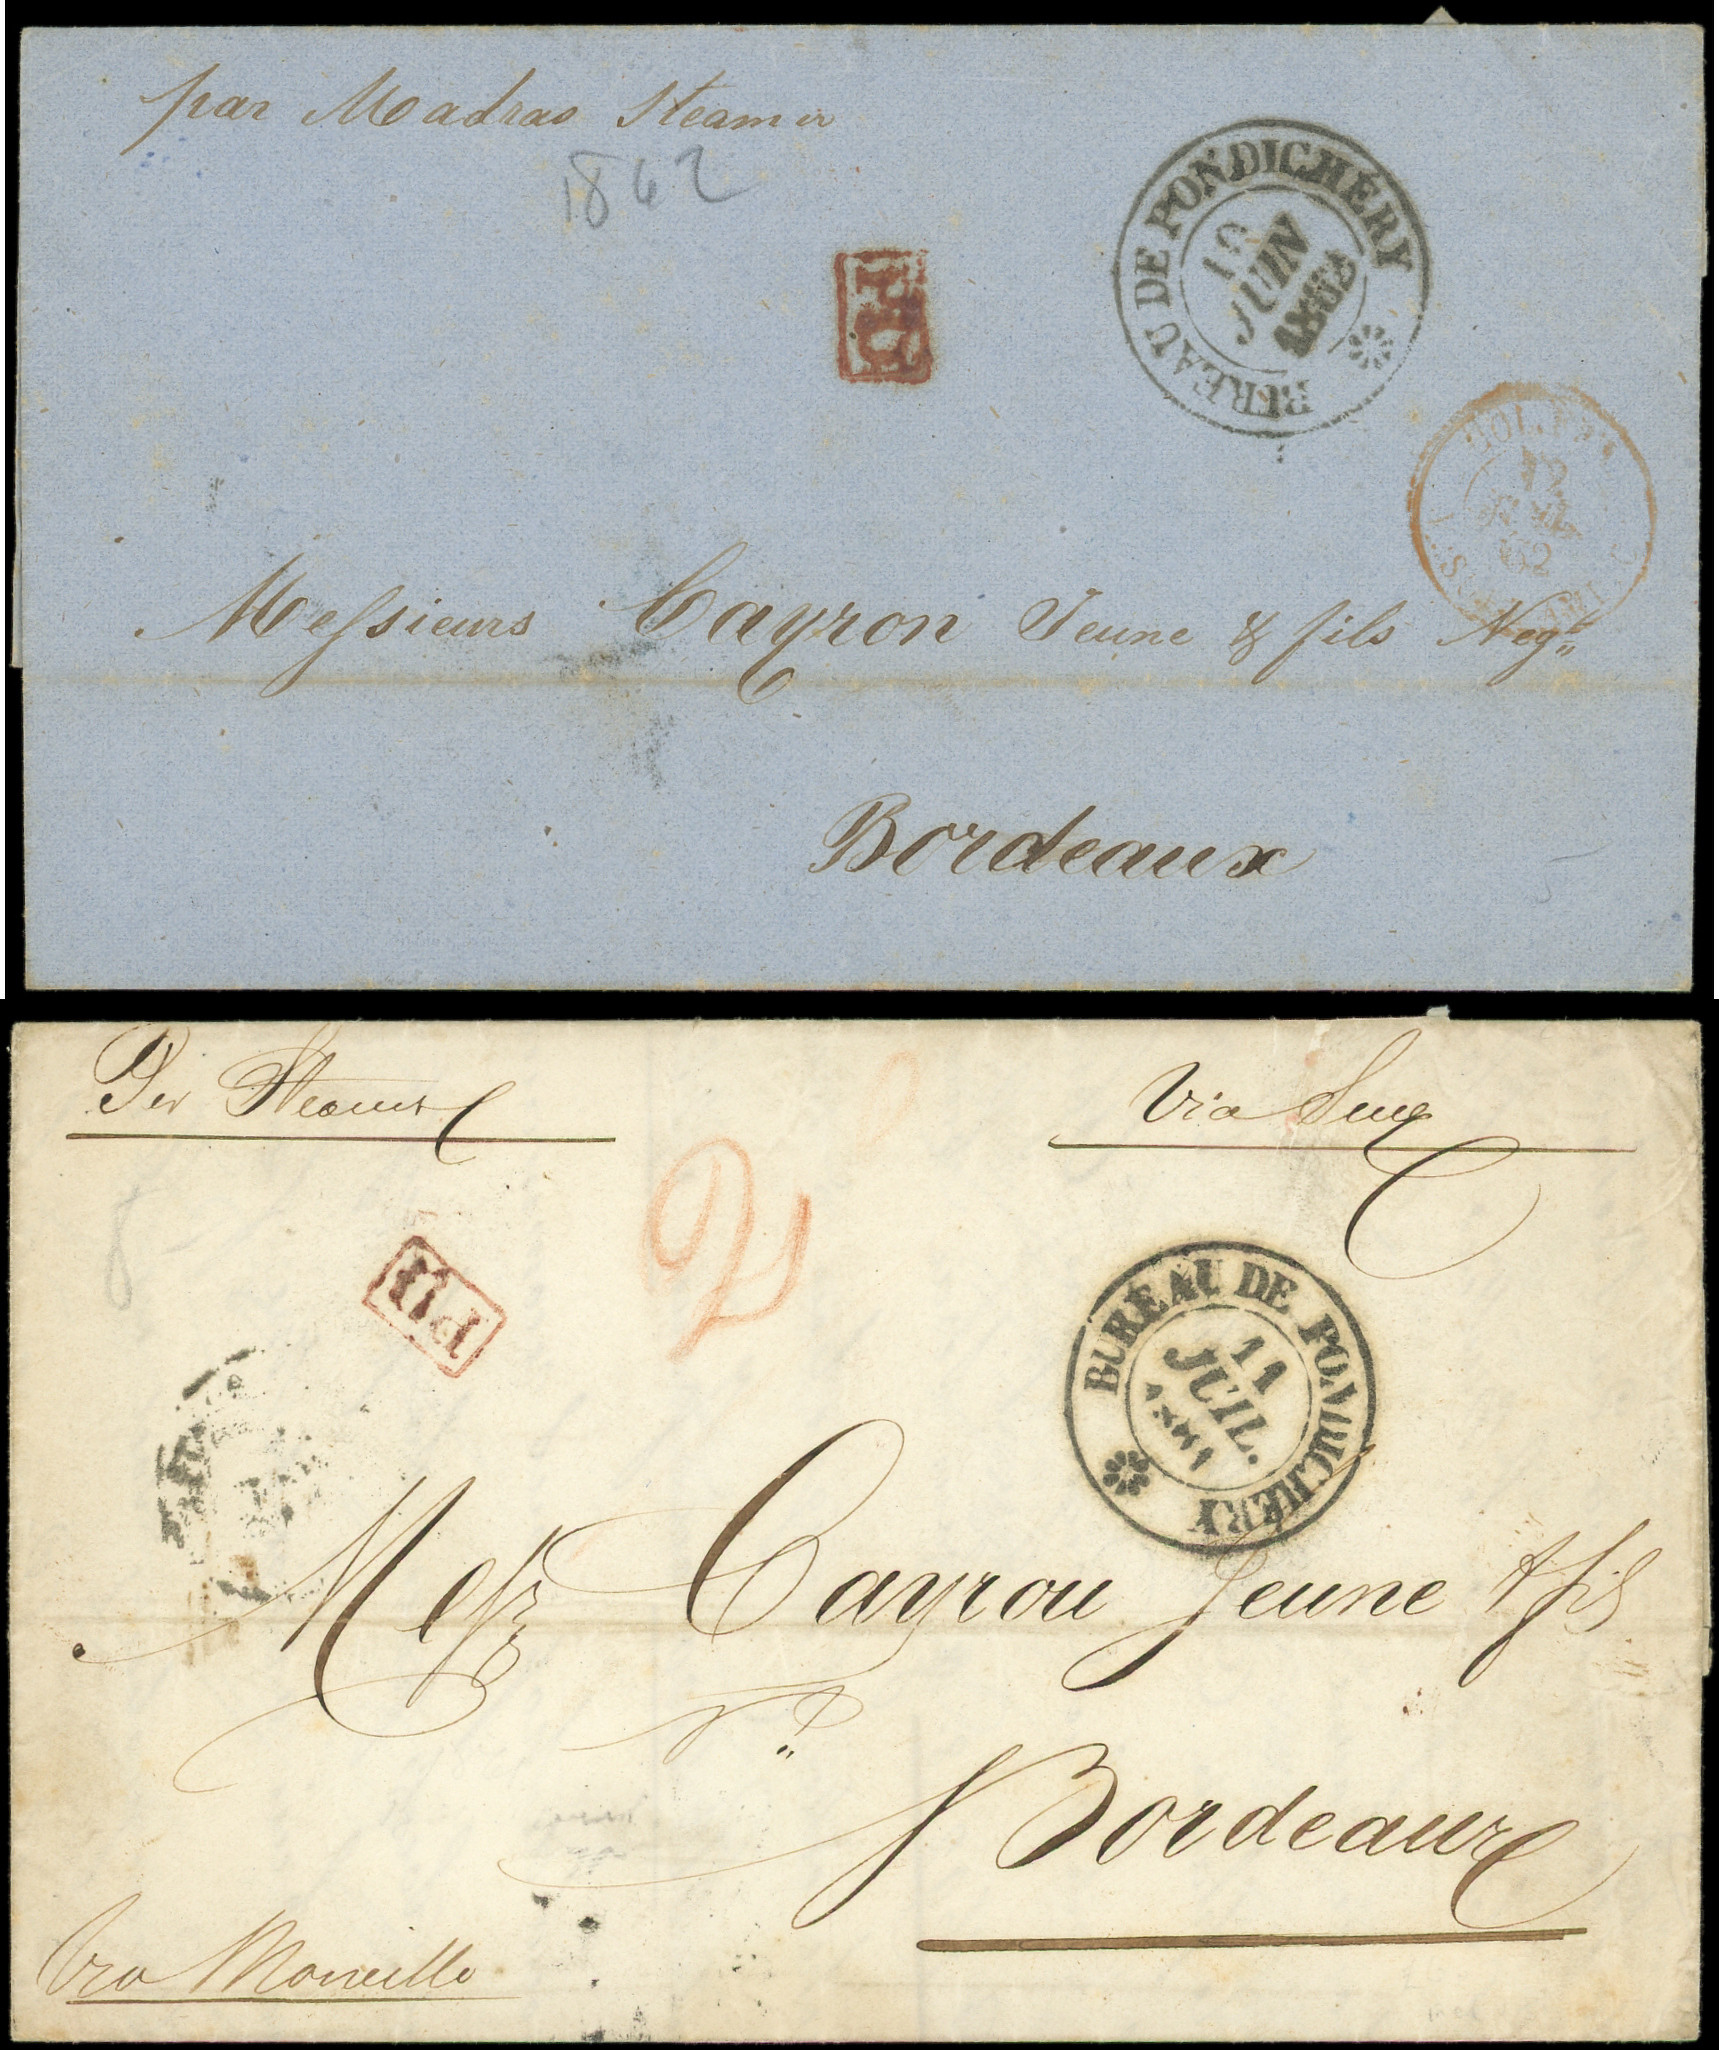 par Madras Steamer
1862
PD
BUREAU DE PONDICHÉRY
JUIN
1862
62
Messieurs Cayrou Jeune & fils Negts
Bordeaux
Per Steamer
Via Suez
2
PD
BUREAU DE PONDICHÉRY
11
JUIL.
1861
Messrs Cayrou Jeune & fils
Bordeaux
Via Marseille